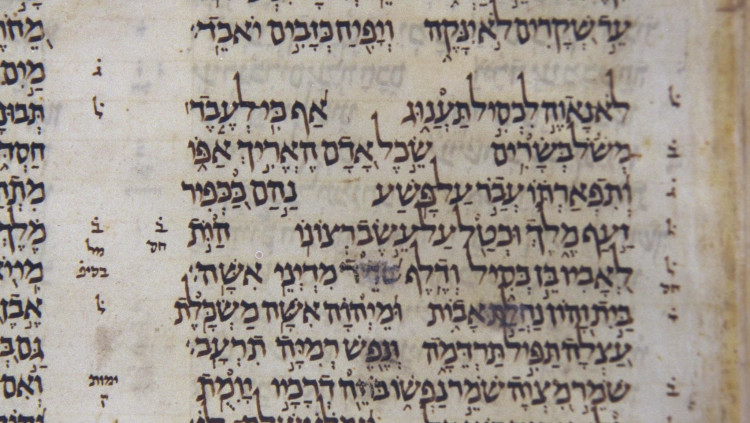 עֵד שְׁקָרִים לֹא יִנָּקֶה וְיָפִיחַ כְּזָבִים יֹאבֵד׃
לֹא נָאוֶה לִכְסִיל תַּעֲנוּג אַף כִּי לְעֶבֶד
מְשֹׁל בְּשָׂרִים שֵׂכֶל אָדָם הֶאֱרִיךְ אַפּוֹ
וְתִפְאַרְתּוֹ עֲבֹר עַל פָּשַׁע נַהַם כַּכְּפִיר
זַעַף מֶלֶךְ וּכְטַל עַל עֵשֶׂב רְצוֹנוֹ הַוֹּת
לְאָבִיו בֵּן כְּסִיל וְדֶלֶף טֹרֵד מִדְיְנֵי אִשָּׁה׃
בַּיִת וָהוֹן נַחֲלַת אָבוֹת וּמֵיְהוָה אִשָּׁה מַשְׂכָּלֶת
עַצְלָה תַּפִּיל תַּרְדֵּמָה וְנֶפֶשׁ רְמִיָּה תִרְעָב׃
שֹׁמֵר מִצְוָה שֹׁמֵר נַפְשׁוֹ בּוֹזֵה דְרָכָיו יוּמָת